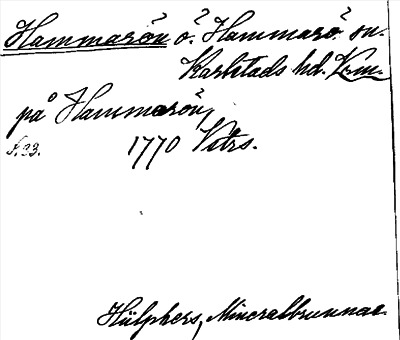 Hammarön ö. Hammarö sn.
Karlstads hd. Vrm.
på Hammarön,
s. 23. 1770 Vttrs.
Hülphers, Mineralbrunnar.